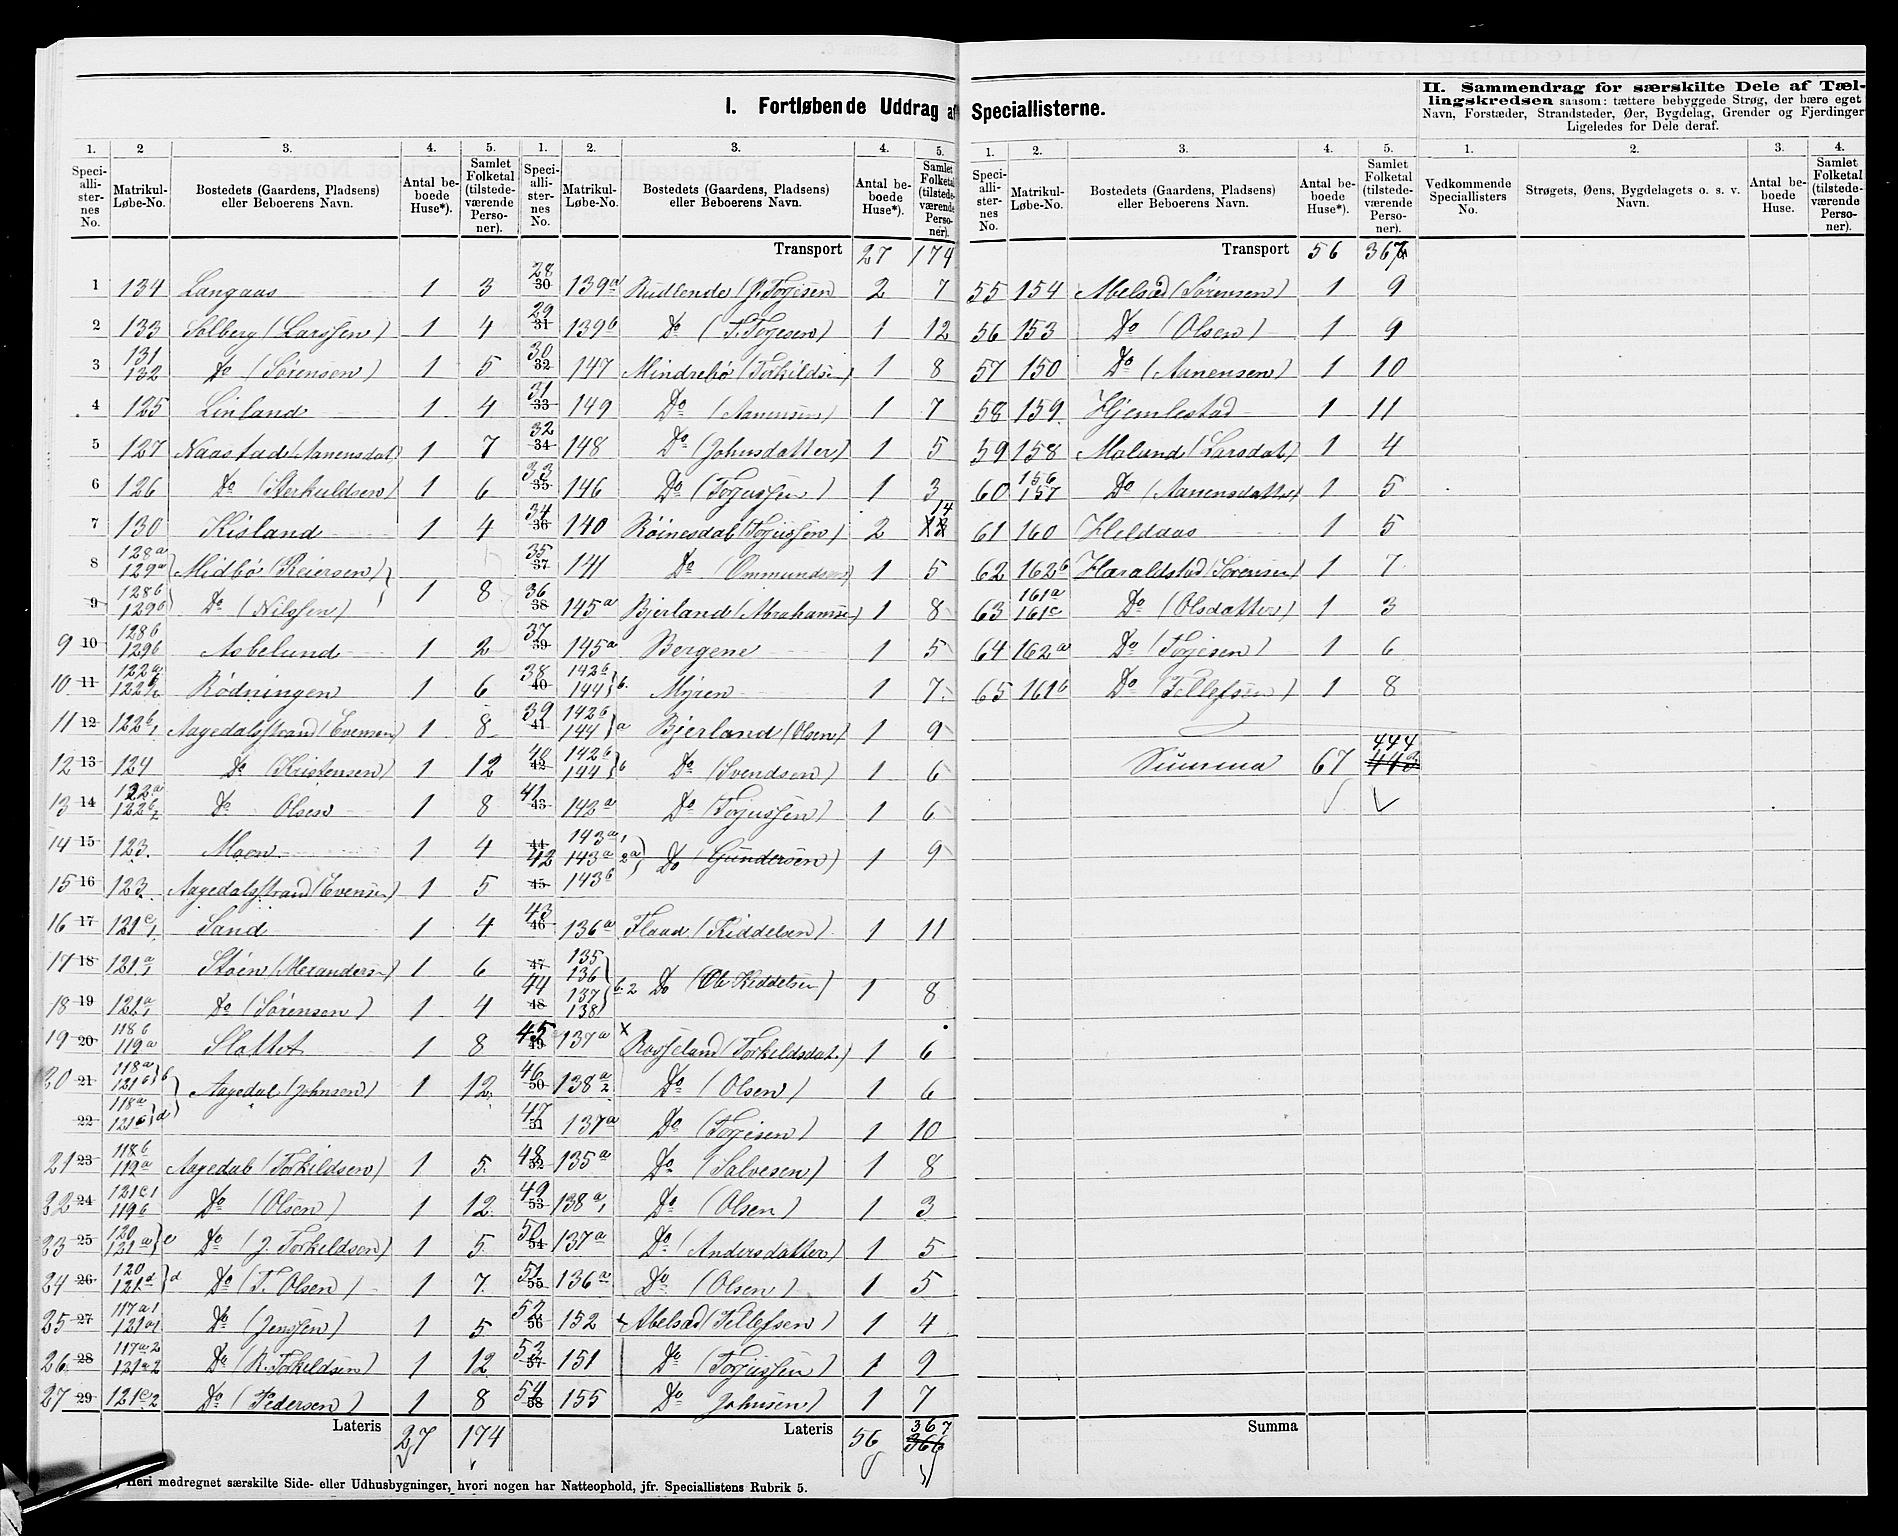 I. Fortløbende Uddrag af Speciallisterne.
II. Sammendrag for særskilte Dele af Tæl-
lingskredsen saasom: tættere bebyggede Strøg, der bære eget
Navn, Forstæder, Strandsteder, Øer, Bygdelag, Grender og Fjerdinger
Ligeledes for Dele deraf.
1. 2 3. 4. 5.
Speci-allister-nes No. Matrikul-Løbe-No. Bostedets (Gaardens, Pladsens) eller Beboerens Navn. Antal be-boede Huse*). Samlet Folketal (tilstede-værende Perso-ner).
1 134 Langaas 1 3
2 133 Solberg (Larssen) 1 4
3 131 132 Do (Sørensen) 1 5
4 125 Linland 1 4
5 127 Naastad (Aanensdat) 1 7
6 126 Do (Sterkuldsen) 1 6
7 130 Kisland 1 4
8 128a 129a Midbø (Reiersen)
9 128b 129b Do (Nilssen) 1 8
9 10 128b 129b Asbelund 1 2
10 11 122a Rødningen 1 6
11 12 122b1 Aagedalsstrand (Evensen) 1 8
12 13 124 Do (Kristensen) 1 12
13 14 122a 122b2 Do Olsen 1 8
14 15 123. Moen 1 4
15 16 123. Aagedalsstrand (Evensen) 1 5
16 17 121c1 Sand 1 4
17 18 121a1 Støen (Alexandersen) 1 6
18 19 121a1 Do (Sørensen) 1 4
19 20 118b 119a Slottet 1 8
20 21 118a 121b b Aagedal (Johnsen) 1 12
22 118a 121b d
21 23 118b 119a Aagedal (Torkildsen) 1 5
22 24 121c1 119b Do (Olsen) 1 12
23 25 120 121a c Do (J. Torkildsen) 1 5
24 26 120 121d d Do (T. Olsen) 1 7
25 27 117a1 121a1 Do (Jenssen) 1 5
26 28 117a2 121a2 Do (R. Torkildsen) 1 12
27 29 121c2 Do (Pedersen) 1 8
Lateris 27 174
1. 2. 3. 4. 5.
Speci-allister-nes No. Matrikul-Løbe-No. Bostedets (Gaardens, Pladsens) eller Beboerens Navn. Antal be-boede Huse*). Samlet Folketal (tilstede-værende Perso-ner).
Transport 27 174
28 30 139a Rudlende (J. Torjesen 2 7
29 31 139b Do (T. Torjesen) 1 12
30 32 147 Mindrebø (Torkildsen) 1 8
31 33 149 Do (Aanensen) 1 7
32 34 148 Do (Johnsdatter) 1 5
33 35 146 Do (Torjussen) 1 3
34 36 140 Røinesdal (Torjussen) 2 14
35 37 141 Do (Ommundsen) 1 5
36 38 145a Bjerland (Abrahamsen) 1 8
37 39 145a Bergene 1 5
38 40 142b 144 b. Myren 1 7
39 41 142b 144 a Bjerland (Olsen) 1 9
40 42 142b 144 b Do (Svendsen) 1 6
41 43 142a Do (Torjussen) 1 6
42 44 143a1 143a 2a Do (Gundersen) 1 9
45 143b
43 46 136a Flaad (Kiddelsen) 1 11
44 47 48 135 136 137 138 b.2 Do (Ole Kiddelsen) 1 8
45 49 137a x Rosseland (Torkildsdat.) 1 6
46 50 138a2 Do (Olsen) 1 6
47 51 137a Do (Torjesen) 1 10
48 52 135a Do (Salvesen) 1 8
49 53 138a1 Do (Olsen) 1 3
50 54 137a Do (Andersdatter) 1 5
51 55 136a Do (Olsen) 1 5
52 56 152 Abelsæd (Tellefsen) 1 4
53 57 151 Do (Torjussen) 1 9
54 58 155 Do Johnsen) 1 7
Lateris 56 367 366
*) Heri medregnet særskilte Side- eller Udhusbygninger, hvori nogen har Natteophold, jfr. Speciallistens Rubrik 5.
1. 2. 3. 4. 5.
Speci-allister-nes No. Matrikul-Løbe-No. Bostedets (Gaardens, Pladsens) eller Beboerens Navn. Antal be-boede Huse*). Samlet Folketal (tilstede-værende Perso-ner).
Transport 56 367
55 154 Abelsæd (Sørensen) 1 9
56 153 Do (Olsen) 1 9
57 150 Do (Aanensen) 1 10
58 159. Hjemlestad 1 11
59 158 Molund (Larsdat) 1 4
60 156 157 Do (Aanensdatter) 1 5
61 160 Helddaas 1 5
62 162b Haraldstad (Sørensen) 1 7
63 161a 161c Do (Olsdatter) 1 3
64 162a Do (Torjesen) 1 6
65 161b Do (Tellefsen) 1 8
Summa 67 444 443
Summa
1. 2. 3. 4.
Vedkommende Speciallisters No. Strøgets, Øens, Bygdelagets o. s. v. Navn. Antal be-boede Huse. Samlet Folketal (tilstede-værende Perso-ner).